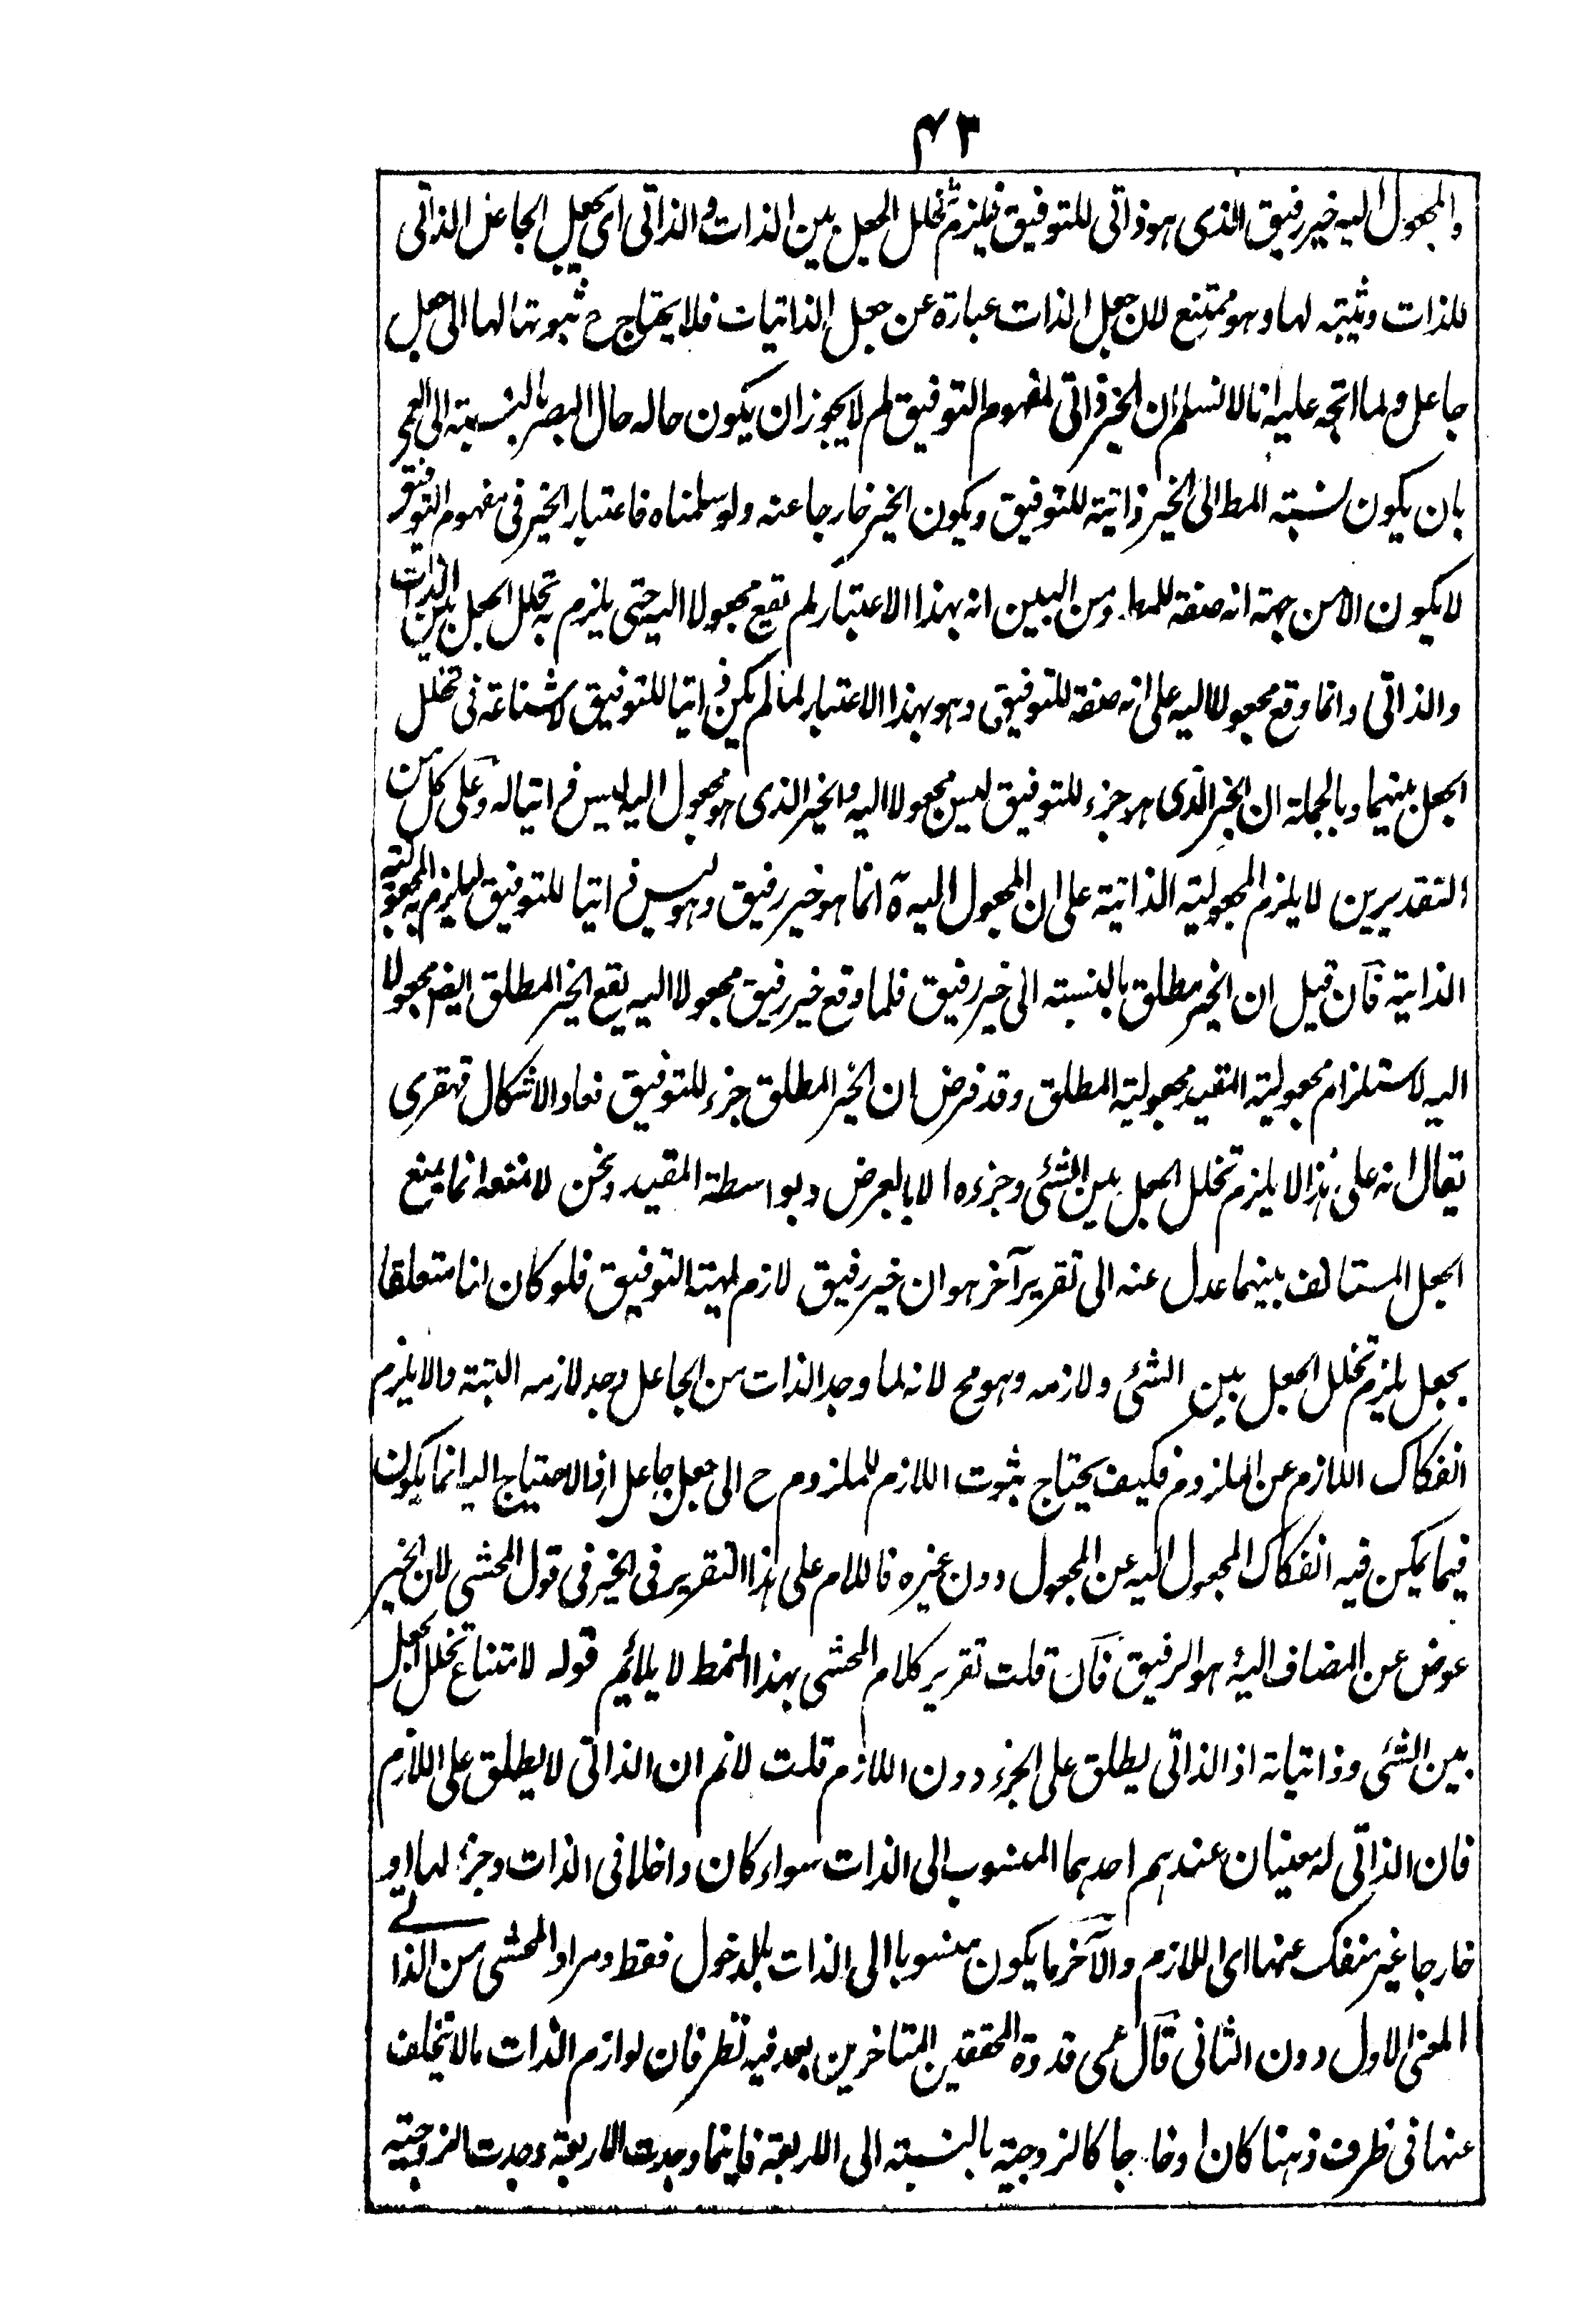 ٤٣
والمجعول اليه خير رفيق الذى هو ذاتى للتوفيق فيلزم تخلل الجعل بين الذات والذاتى اى يجعل الجاعل الذاتى
للذات ويثبته لها وهو ممتنع لان جعل الذات عبارة عن جعل الذاتيات فلا يحتاج ح ثبوتها لها الى جعل
جاعل ولما اتجه عليه انا لا نسلم ان الخير ذاتى لمفهوم التوفيق لم لا يجوز ان يكون حاله حال البصر بالنسبة الى العمى
بان يكون نسبة المط الى الخير ذاتية للتوفيق ويكون الخير خارجا عنه ولو سلمناه فاعتبار الخير فى مفهوم التوفيق
لا يكون الا من جهة انه صفة للمط ومن البين انه بهذا الاعتبار لم يقع مجعولا اليه حتى يلزم به تخلل الجعل بين الذات
والذاتى وانما وقع مجعولا اليه على انه صفة للتوفيق وهو بهذا الاعتبار لما لم يكن ذاتيا للتوفيق لا شناعة فى تخلل
الجعل بينهما وبالجملة ان الخير الذى هو جزء للتوفيق ليس مجعولا اليه والخير الذى هو مجعول اليه ليس ذاتيا له وعلى كل من
التقديرين لا يلزم المجعولية الذاتية على ان المجعول اليه ة انما هو خير رفيق وهو ليس ذاتيا للتوفيق ليلزم به المجعولية
الذاتية فان قيل ان الخير مطلق بالنسبة الى خير رفيق فلما وقع خير رفيق مجعولا اليه يقع الخير المطلق ايض مجعولا
اليه لاستلزام مجعولية المقيد مجعولية المطلق وقد فرض ان الخير المطلق جزء للتوفيق فعاد الاشكال قهقرى
يقال انه على هذا لا يلزم تخلل الجعل بين الشئ وجزءه الا بالعرض وبواسطة المقيد ونحن لا نمنعه انما يمنع
الجعل المستانف بينهما عدل عنه الى تقرير آخر هو ان خير رفيق لازم لمهية التوفيق فلو كان انا متعلقا
بجعل يلزم تخلل الجعل بين الشئ ولازمه وهو مح لانه لما وجد الذات من الجاعل وجد لازمه البتة والا يلزم
انفكاك اللازم عن الملزوم فكيف يحتاج ثبوت اللازم للملزوم ح الى جعل جاعل اذ الاحتياج اليه انما يكون
فيما يمكن فيه انفكاك المجعول اليه عن المجعول دون غيره فاللام على هذا التقرير فى الخير فى قول المحشى لان الخير
عوض عن المضاف اليه هو الرفيق فان قلت تقرير كلام المحشى بهذا النمط لا يلائم قوله لامتناع تخلل الجعل
بين الشئ وذاتياته اذ الذاتى يطلق على الجزء دون اللازم قلت لانم ان الذاتى لا يطلق على اللازم
فان الذاتى له معنيان عندهم احدهما المنسوب الى الذات سواء كان داخلا فى الذات وجزء لها او
خارجا غير منفك عنها اى اللازم والآخر ما يكون منسوبا الى الذات بالدخول فقط ومراد المحشى من الذاتى
المعنى الاول دون الثانى قال عمى قدوة المحققين المتاخرين بعد فيه نظر فان لوازم الذات ما لا تخلف
عنها فى ظرف ذهنا كان او خارجا كالزوجية بالنسبة الى الاربعة فاينما وجدت الاربعة وجدت الزوجية